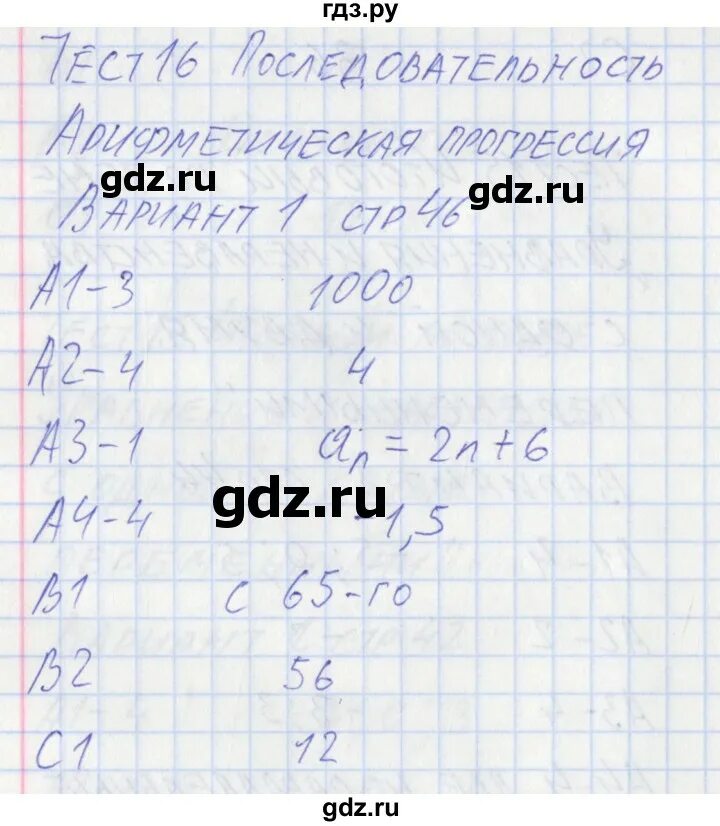 гдз.ру
ТЕСТ 16 ПОСЛЕДОВАТЕЛЬНОСТЬ
АРИФМЕТИЧЕСКАЯ ПРОГРЕССИЯ
gdz.ru gdz.ru
ВАРИАНТ 1 СТР 46
А1-3 1000
А2-4 4
А3-1 an = 2n+6
gdz.ru
А4-4 -1,5
В1 С 65-го
В2 56
С1 12
gdz.ru